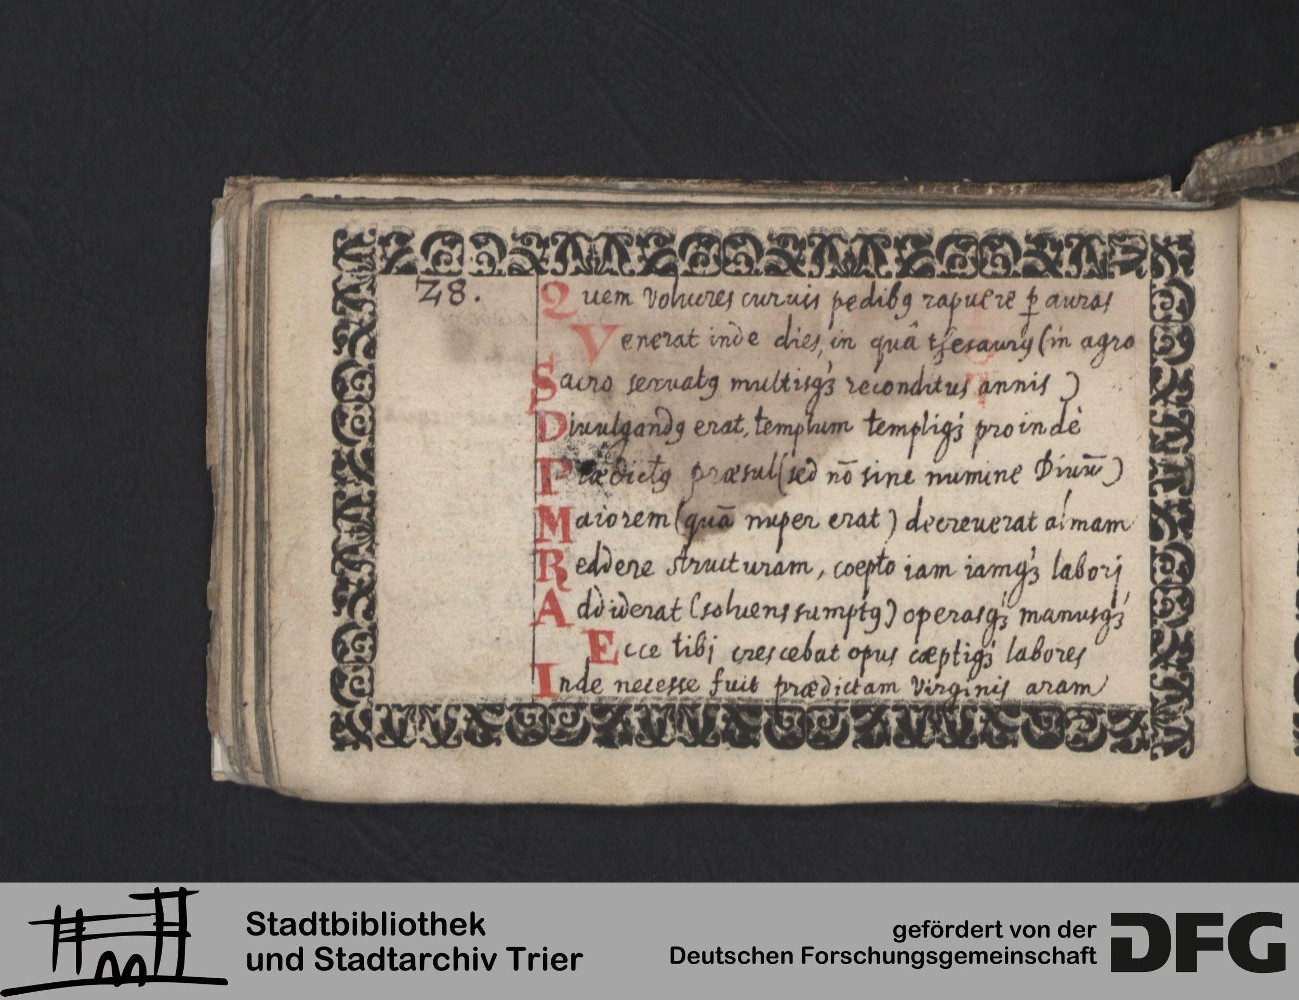 28.
Quem volucres curuis pedibꝰ rapuere ꝑ auras
Venerat inde dies, in quâ thesaurꝰ (in agro
Sacro seruatꝰ multisqꝫ reconditus annis)
Diuulgandꝰ erat, templum templiqꝫ proindè
Prædictꝰ præsul (sed nō sine numine Diuū)
Maiorem (quā nuper erat) decreuerat almam
Reddere structuram, coepto iam iamqꝫ laborj
Addiderat (soluens sumptꝰ) operasqꝫ manusqꝫ
Ecce tibj crescebat opus cæptiqꝫ labores
Inde necesse fuit prædictam Virginis aram
Stadtbibliothek
und Stadtarchiv Trier
gefördert von der
Deutschen Forschungsgemeinschaft
DFG